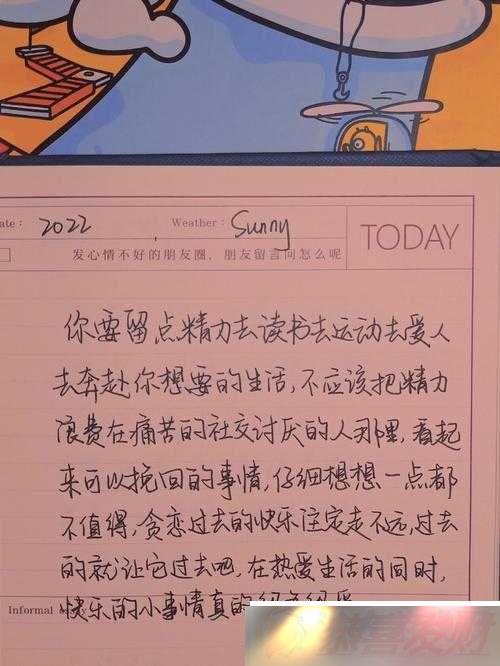 ate： 2022 Weather： Sunny TODAY
发心情不好的朋友圈，朋友留言问怎么呢
你要留点精力去读书去运动去爱人
去奔赴你想要的生活，不应该把精力
浪费在痛苦的社交讨厌的人那里，看起
来可以挽回的事情，仔细想想一点都
不值得，贪恋过去的快乐注定走不远，过去
的就让它过去吧，在热爱生活的同时，
快乐的小事情真的
Informal